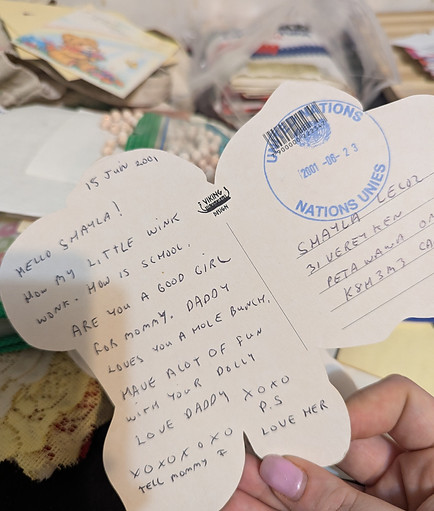 15 Juin 2001
HELLO SHAYLA!
HOW MY LITTLE WINK
WONK. HOW IS SCHOOL.
ARE YOU A GOOD GIRL
FOR MOMMY. DADDY
LOVES YOU A HOLE BUNCH.
HAVE ALOT OF FUN
WITH YOUR DOLLY
LOVE DADDY XOXO
XOXOXOXO P.S
TELL MOMMY I LOVE HER
VIKING
DESIGN
UNITED NATIONS
2001-06-23
NATIONS UNIES
SHAYLA
31 VEREYKEN
PETAWAWA ON
K8H3M3 CA